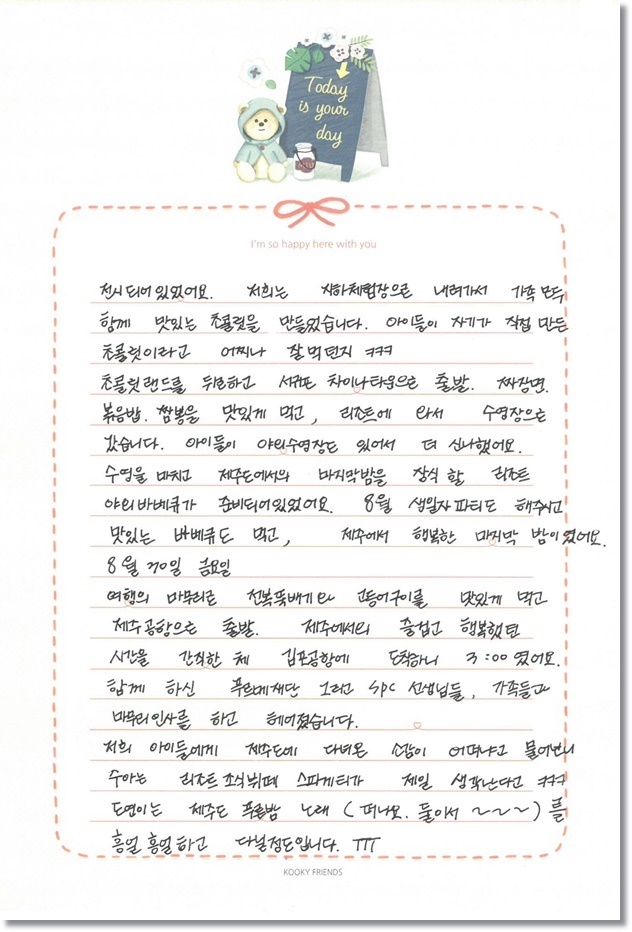 Today
is your
day
I'm so happy here with you
전시되어 있었어요. 저희는 지하체험장으로 내려가서 가족 모두
함께 맛있는 초콜렛을 만들었습니다. 아이들이 자기가 직접 만든
초콜릿이라고 어찌나 잘 먹던지 ㅋㅋㅋ
초콜릿랜드를 뒤로하고 서귀포 차이나타운으로 출발. 짜장면.
볶음밥. 짬뽕을 맛있게 먹고, 리조트에 와서 수영장으로
갔습니다. 아이들이 야외수영장도 있어서 더 신나했어요.
수영을 마치고 제주도에서의 마지막밤을 장식 할 리조트
야외 바베큐가 준비되어있었어요. 8월 생일자 파티도 해주시고
맛있는 바베큐도 먹고, 제주에서 행복한 마지막 밤이었어요.
8월 20일 금요일
여행의 마무리로 전복뚝배기와 고등어구이를 맛있게 먹고
제주공항으로 출발. 제주에서의 즐겁고 행복했던
시간을 간직한 체 김포공항에 도착하니 3:00 였어요.
함께 하신 푸르메재단 그리고 spc 선생님들, 가족들과
마무리인사를 하고 헤어졌습니다.
저희 아이들에게 제주도에 다녀온 소감이 어떠냐고 물어보니
수아는 리조트 조식뷔페 스파게티가 제일 생각난다고 ㅋㅋㅋ
도연이는 제주도 푸른밤 노래 (떠나요. 둘이서 ~~~) 를
흥얼 흥얼하고 다닐정도입니다. ㅠㅠ
KOOKY FRIENDS